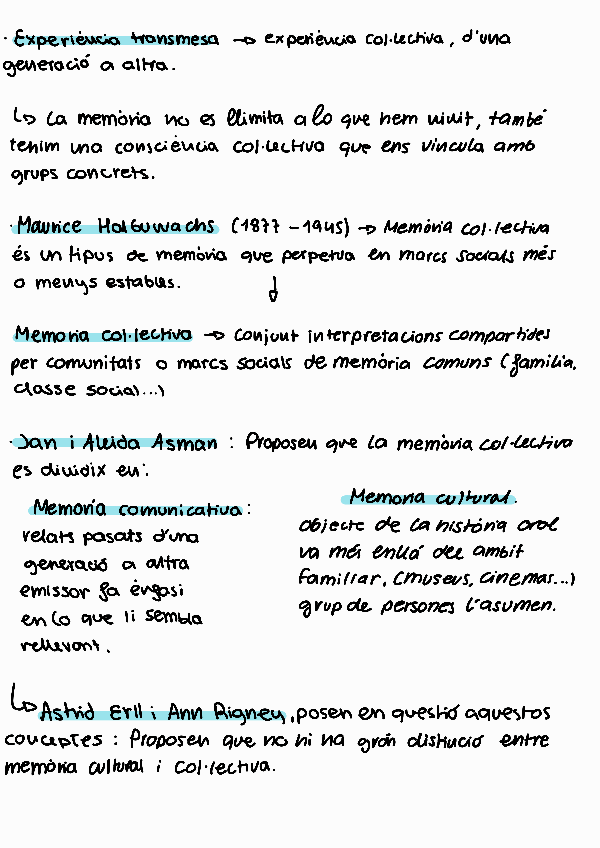 · Experiència transmesa → experiència col·lectiva, d'una
generació a altra.
↳ La memòria no es llimita a lo que hem viuit, també
tenim una consciència col·lectiva que ens vincula amb
grups concrets.
· Maurice Halbuwachs (1877 - 1945) → Memòria col·lectiva
és un tipus de memòria que perpetua en marcs socials més
o menys estables. ↓
Memoria col·lectiva → Conjunt interpretacions compartides
per comunitats o marcs socials de memòria comuns (família,
classe social...)
· Jan i Aleida Asman : Proposen que la memòria col·lectiva
es dividix en:
Memoria comunicativa:
relats pasats d'una
generació a altra
emissor fa èngasi
en lo que li sembla
rellevant.
Memoria cultural.
objecte de la història oral
va més enllá del ambit
familiar, (museus, cinemas...)
grup de persones l'asumen.
↳ Astrid Erll i Ann Rigney, posen en questió aquestos
conceptes : Proposen que no hi ha gran distinció entre
memòria cultural i col·lectiva.